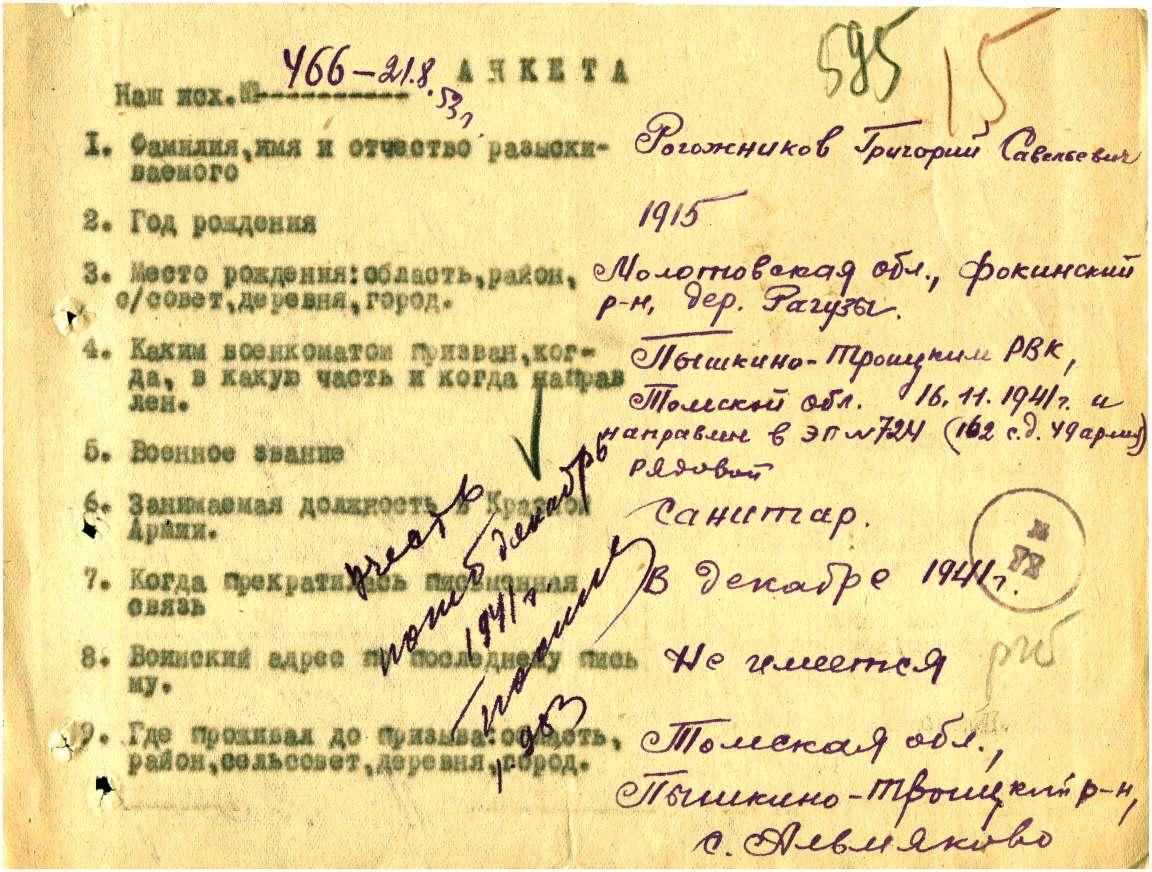 595 15
466-21.8.53г. АНКЕТА
Наш исх.№
1. Фамилия,имя и отчество разыски- Рогожников Григорий Савельевич
ваемого
2. Год рождения 1915
3. Место рождения:область,район, Молотовская обл., Фокинский
с/совет,деревня,город. р-н, дер. Рагузы.
4. Каким военкоматом призван,ког- Пышкино-Троицким РВК,
да, в какую часть и когда направ Томской обл. 16.11.1941г. и
лен. направлен в ЭП №724 (162 с.д. 49 армия)
5. Военное звание рядовой
6. Занимаемая должность в Красной Санитар.
Армии.
7. Когда прекратилась письменная В декабре 1941г.
связь
8. Воинский адрес по последнему пись Не имеется
му.
9. Где проживал до призыва:область, Томская обл.,
район,сельсовет,деревня,город. Пышкино-Троицкий р-н,
с. Альмяково
учесть
погиб декабрь
1941г.